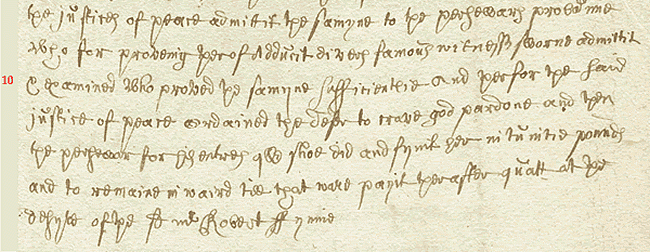 the justices of peace admittit the samyne to the persewars probatione
Who for proveing therof Adducit divers famous witness sworne admittit
10 & examined Who proved the samyne sufficientlie And therfor the said
justice of peace ordained the defer to crave god pardone and then
the persewar for his entres qch shoe did and fynit her in tuintie pounds
and to remaine in waird till that ware payit therafter quatt at the
desyre of the sd mr Robert ffynnie